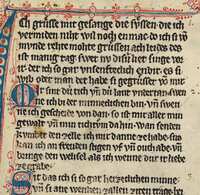 Ich grůsse mit gesange die sůssen die ich
vermiden niht wil noch en mac do ich si vō
mvnde rehte mohte grůssen ach leides des
ist manig tag swer nv disiv liet singe vor
ir der ich so gar vnsenfteclich enbir es si
wip oder man der habe si gegrůsset vō mir
Mir sint dú rich vn̄ dú lant vndertan swen
ne ich bi der minneclichen bin vn̄ swen
ne ich gescheide von dan so ist mir aller min
gewalt vn̄ min richtvm da hin wan senden
kvmber den zelle ich mir danne ze habe sus
kan ich an freuden stigen vf vn̄ ouch abe vn̄
bringe den wehsel als ich wenne dur ir liebe
ze grabe
Sit das ich si so gar herzeclichen minne
vn̄ si ane wenken zallen ziten trage